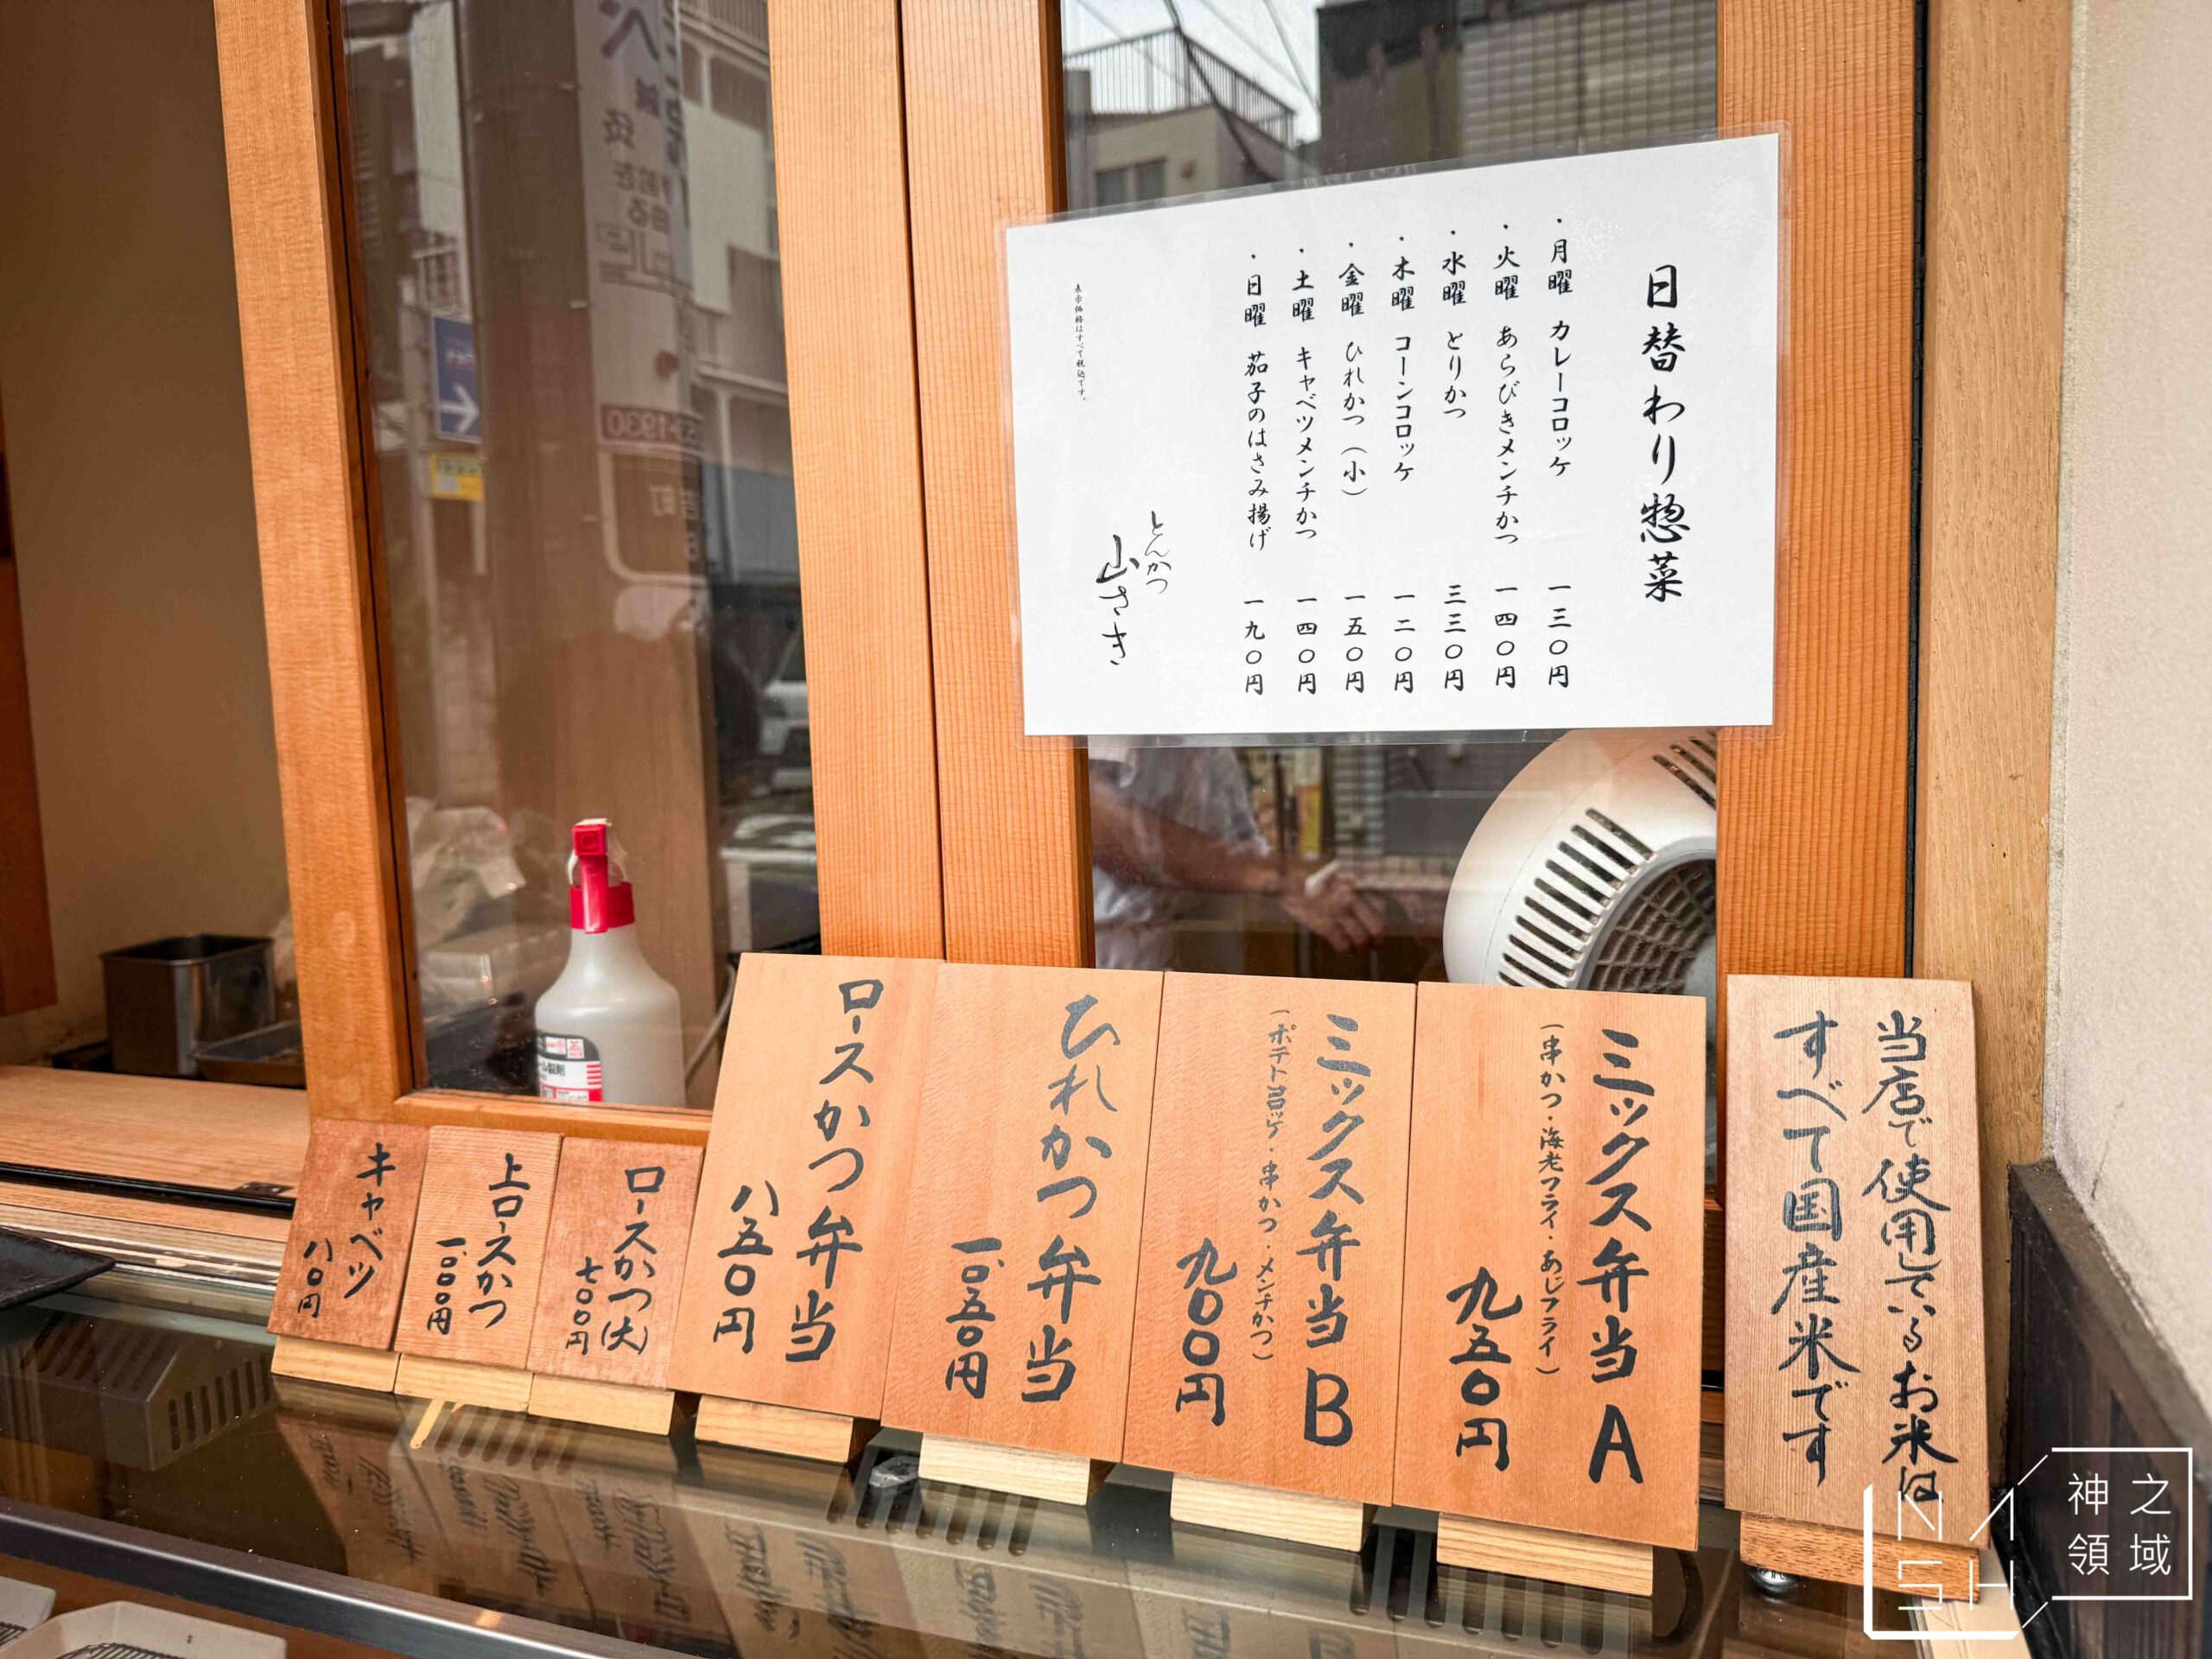 日替わり惣菜
・月曜 カレーコロッケ 一三〇円
・火曜 あらびきメンチかつ 一四〇円
・水曜 とりかつ 三三〇円
・木曜 コーンコロッケ 一二〇円
・金曜 ひれかつ（小） 一五〇円
・土曜 キャベツメンチかつ 一四〇円
・日曜 茄子のはさみ揚げ 一九〇円
とんかつ
山さき
表示価格はすべて税込です。
当店で使用しているお米は
すべて国産米です
ミックス弁当A
（串かつ・海老フライ・あじフライ）
九五〇円
ミックス弁当B
（ポテトコロッケ・串かつ・メンチかつ）
九〇〇円
ひれかつ弁当
一、〇五〇円
ロースかつ弁当
八五〇円
ロースかつ(大)
七〇〇円
上ロースかつ
一、〇〇〇円
キャベツ
八〇円
NASH
神之領域